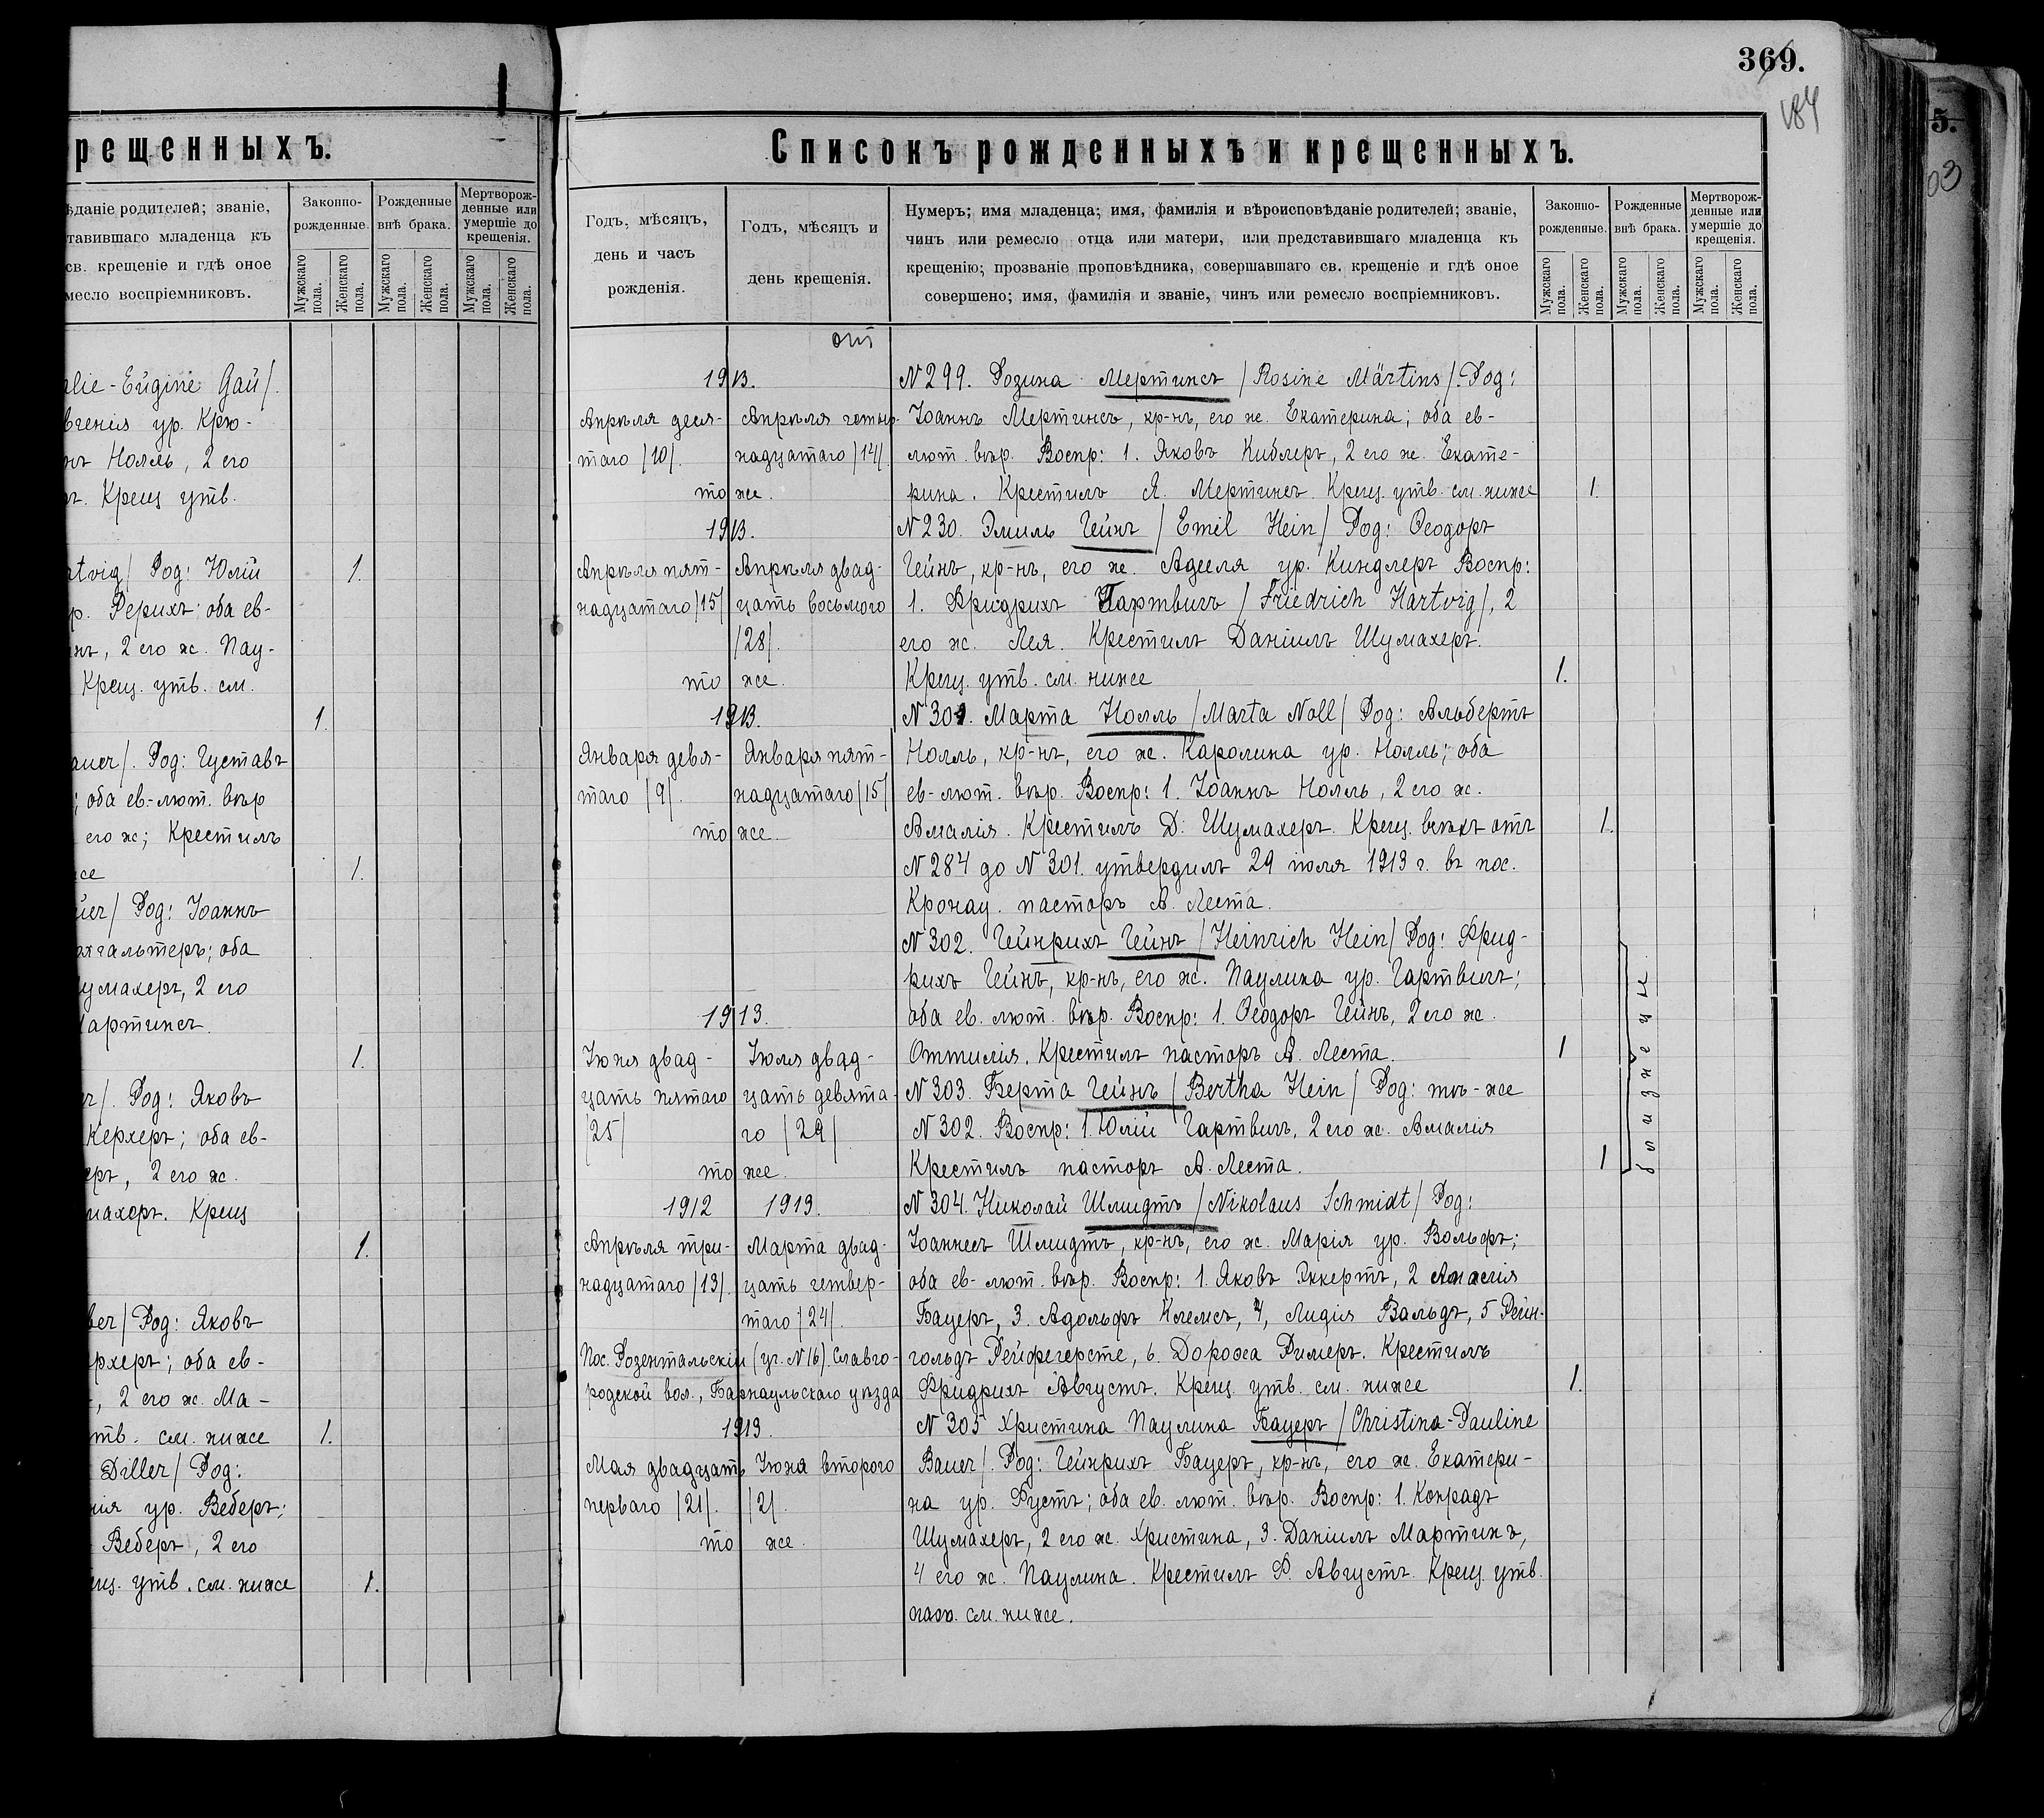 рещенныхъ.
ѣданіе родителей; званіе,
тавившаго младенца къ
св. крещеніе и гдѣ оное
месло воспріемниковъ.
Законно-
рожденные.
Рожденные
внѣ брака.
Мертворож-
денные или
умершіе до
крещенія.
Мужскаго пола.
Женскаго пола.
Мужскаго пола.
Женскаго пола.
Мужскаго пола.
Женскаго пола.
alie-Eugine Gaŭ/.
вгенія ур. Крю-
нъ Нолль, 2 его
ръ. Крещ утв.
rtvig/ Род: Юлій 1.
р. Рерихъ; оба ев-
нъ, 2 его ж. Пау-
Крещ. утв. см.
1.
auer/. Род: Густавъ
; оба ев-лют. вѣр
его ж; Крестилъ
же 1.
uer/ Род: Іоаннъ
хгальтеръ; оба
умахеръ, 2 его
Мартинсъ.
1.
er/. Род: Яковъ
Керхеръ; оба ев-
еръ, 2 его ж.
махеръ. Крещ
1.
ber/ Род: Яковъ
рхеръ; оба ев-
, 2 его ж. Ма-
утв. см. ниже 1.
Diller/ Род:
нія ур. Веберъ;
Веберъ, 2 его
ещ. утв. см. ниже 1.
369.
184
5.
03
Списокъ рожденныхъ и крещенныхъ.
Годъ, мѣсяцъ,
день и часъ
рожденія.
Годъ, мѣсяцъ и
день крещенія.
Нумеръ; имя младенца; имя, фамилія и вѣроисповѣданіе родителей; званіе,
чинъ или ремесло отца или матери, или представившаго младенца къ
крещенію; прозваніе проповѣдника, совершавшаго св. крещеніе и гдѣ оное
совершено; имя, фамилія и званіе, чинъ или ремесло воспріемниковъ.
Законно-
рожденные.
Рожденные
внѣ брака.
Мертворож-
денные или
умершіе до
крещенія.
Мужскаго пола.
Женскаго пола.
Мужскаго пола.
Женскаго пола.
Мужскаго пола.
Женскаго пола.
1913. N 299. Розина Мертинсъ /Rosine Märtins/. Род:
Апрѣля деся- Апрѣля четыр- Іоаннъ Мертинсъ, кр-нъ, его ж. Екатерина; оба ев-
таго /10/. надцатаго /14/ лют. вѣр. Воспр: 1. Яковъ Киблеръ, 2 его ж. Екате-
то же. рина. Крестилъ Я. Мертинсъ. Крещ. утв. см. ниже 1.
1913. N 230. Эмиль Гейнъ /Emil Hein/ Род: Ѳеодоръ
Апрѣля пят- Апрѣля двад- Гейнъ, кр-нъ, его ж. Аделя ур. Киндлеръ Воспр:
надцатаго /15/ цать восьмого 1. Фридрихъ Гартвигъ /Friedrich Hartvig/, 2
/28/. его ж. Лея. Крестилъ Даніилъ Шумахеръ.
то же. Крещ. утв. см. ниже 1.
1913. N 301. Марта Нолль /Marta Noll/ Род: Альбертъ
Января девя- Января пят- Нолль, кр-нъ, его ж. Каролина ур. Нолль; оба
таго /9/. надцатаго /15/ ев-лют. вѣр. Воспр: 1. Іоаннъ Нолль, 2 его ж.
то же. Амалія. Крестилъ Д. Шумахеръ. Крещ. всѣхъ отъ 1.
N 284 до N 301. утвердилъ 29 июля 1913 г. въ пос.
Кронау. пасторъ А. Леста.
N 302. Гейнрихъ Гейнъ /Heinrich Hein/ Род: Фрид-
рихъ Гейнъ, кр-нъ, его ж. Паулина ур. Гартвигъ;
1913. оба ев. лют. вѣр. Воспр: 1. Ѳеодоръ Гейнъ, 2 его ж.
Іюня двад- Іюля двад- Оттилія. Крестилъ пасторъ А. Леста. 1
цать пятаго цать девята- N 303. Берта Гейнъ /Bertha Hein/ Род: тѣ-же
/25/ го /29/ N 302. Воспр: 1. Юлій Гартвигъ, 2 его ж. Амалія
то же. Крестилъ пасторъ А. Леста. 1
близнецы
1912 1913. N 304. Николай Шмидтъ /Nikolaus Schmidt/ Род:
Апрѣля три- Марта двад- Іоаннесъ Шмидтъ, кр-нъ, его ж. Марія ур. Вольфъ;
надцатаго /13/. цать четвер- оба ев-лют. вѣр. Воспр: 1. Яковъ Эккертъ, 2 Амалія
таго /24/. Бауеръ, 3. Адольфъ Клемсъ, 4, Лидія Вальдъ, 5 Рейн-
Пос. Розентальскій (уч. N 16). Славго- гольдъ Рейфегерсте, 6. Дорожа Римеръ. Крестилъ
родской вол., Барнаульскаго уѣзда Фридрихъ Августъ. Крещ. утв. см. ниже 1.
1913. N 305 Христина Паулина Бауеръ /Christina-Pauline
Мая двадцать Іюня второго Bauer/. Род: Гейнрихъ Бауеръ, кр-нъ, его ж. Екатери-
перваго /21/. /2/. на ур. Рустъ; оба ев. лют. вѣр. Воспр: 1. Конрадъ
то же. Шумахеръ, 2 его ж. Христина, 3. Даніилъ Мартинъ,
4 его ж. Паулина. Крестилъ Ф. Августъ. Крещ. утв.
см. ниже.